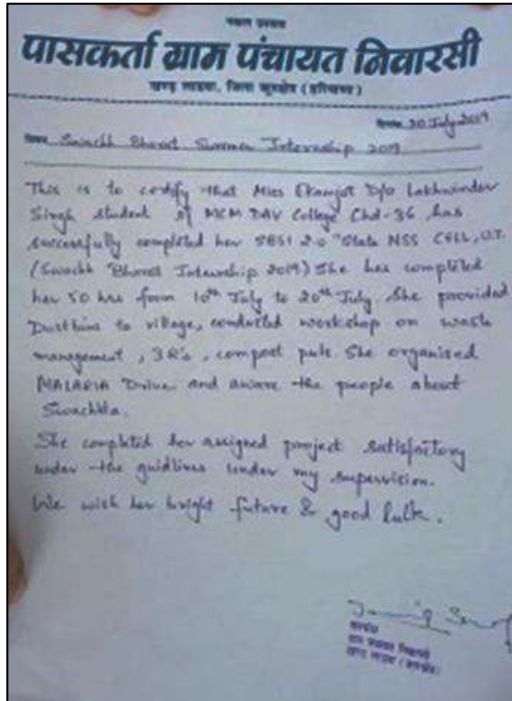 पासकर्ता ग्राम पंचायत निवारसी
खण्ड लाडवा, जिला कुरुक्षेत्र (हरियाणा)
20 July 2019
Swachh Bharat Summer Internship 2019
This is to certify that Miss Ekamjot D/o Lakhwinder
Singh student of MCM DAV College Chd-36 has
successfully completed her SBSI 2.0 "State NSS CELL, U.T.
(Swachh Bharat Internship 2019) She has completed
her 50 hrs from 10th July to 20th July. She provided
Dustbins to village, conducted workshop on waste
management, 3R's, compost pits. She organised
MALARIA Drive and aware the people about
Swachhta.
She completed her assigned project satisfactory
under the guidlines under my supervision.
We wish her bright future & good luck.
सरपंच
ग्राम पंचायत निवारसी
खण्ड लाडवा (कुरुक्षेत्र)